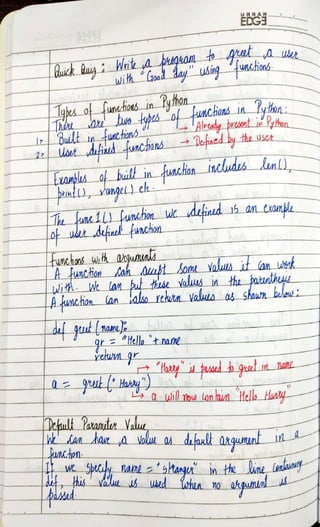 URBAN
EDGE
Quick Quiz : Write a program to greet a user
with "Good day" using functions.
Types of functions in Python
There are two types of functions in Python :
1. Built in functions → Already present in Python
2. User defined functions → Defined by the user
Examples of built in function includes len(),
print(), range() etc.
The func1() function we defined is an example
of user defined function.
Functions with arguments
A function can accept some values it can work
with. We can put these values in the parenthesis
A function can also return values as shown below:
def greet (name):
gr = "Hello" + name
return gr
→ "Harry" is passed to greet in name
a = greet ("Harry")
→ a will now contain "Hello Harry"
Default Parameter Value
We can have a value as default argument in a
function.
If we specify name = "stranger" in the line containing
def, this value is used when no argument is
passed.